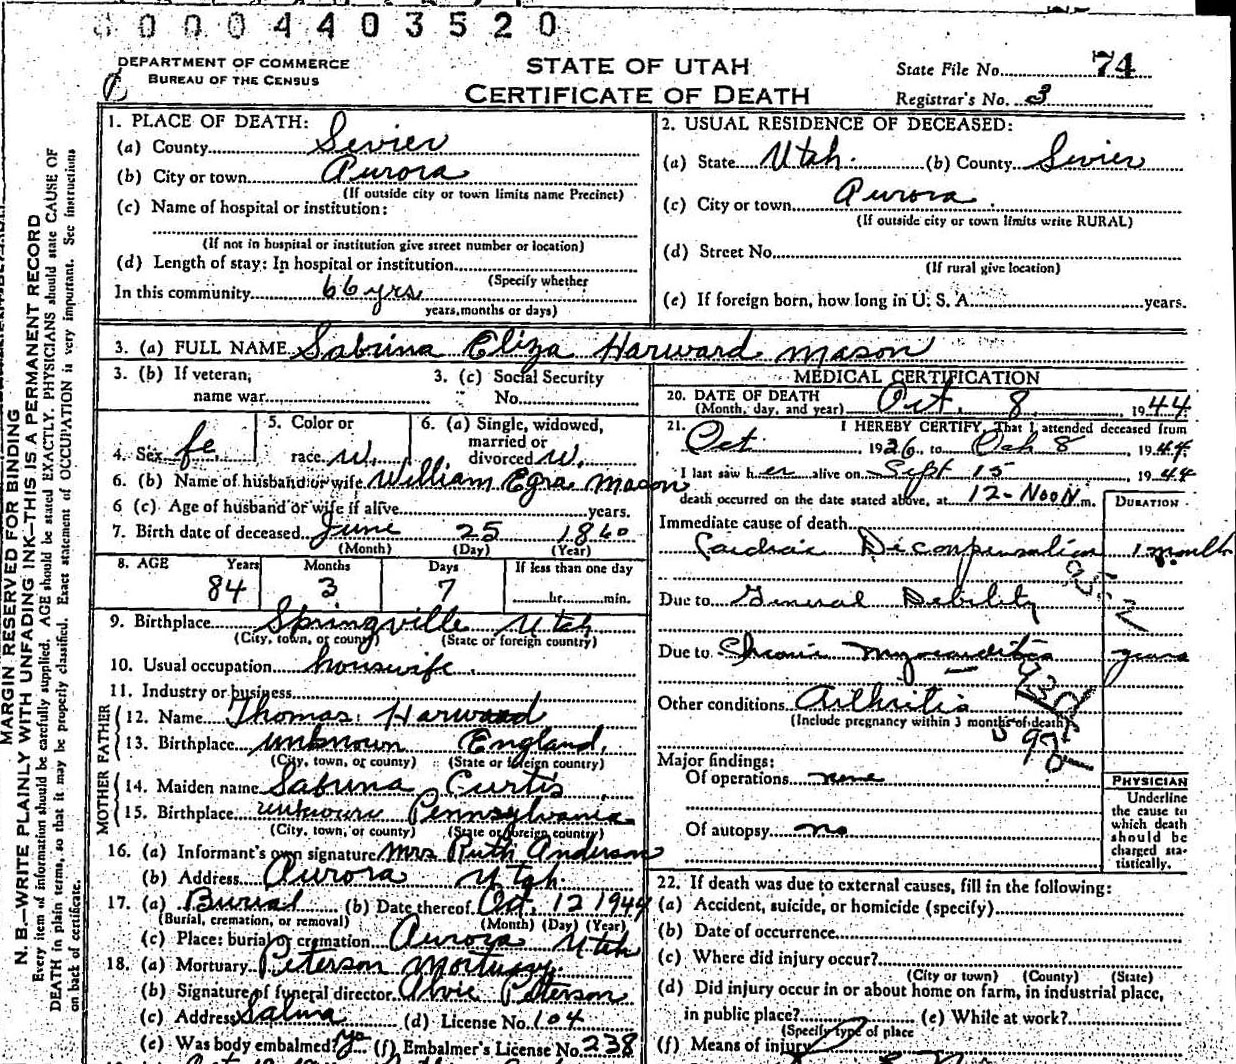 00004403520
DEPARTMENT OF COMMERCE
BUREAU OF THE CENSUS
STATE OF UTAH
CERTIFICATE OF DEATH
State File No. 74
Registrar's No. 3
MARGIN RESERVED FOR BINDING
N. B.—WRITE PLAINLY WITH UNFADING INK—THIS IS A PERMANENT RECORD
Every item of information should be carefully supplied. AGE should be stated EXACTLY. PHYSICIANS should state CAUSE OF
DEATH in plain terms, so that it may be properly classified. Exact statement of OCCUPATION is very important. See instructions
on back of certificate.
1. PLACE OF DEATH:
(a) County Sevier
(b) City or town Aurora
(If outside city or town limits name Precinct)
(c) Name of hospital or institution:
(If not in hospital or institution give street number or location)
(d) Length of stay: In hospital or institution
(Specify whether
In this community 66 yrs
years, months or days)
2. USUAL RESIDENCE OF DECEASED:
(a) State Utah. (b) County Sevier
(c) City or town Aurora
(If outside city or town limits write RURAL)
(d) Street No.
(If rural give location)
(e) If foreign born, how long in U. S. A. years.
3. (a) FULL NAME Sabrina Eliza Harward Mason
3. (b) If veteran, name war
3. (c) Social Security No.
4. Sex fe
5. Color or race w.
6. (a) Single, widowed, married or divorced w.
6. (b) Name of husband or wife William Ezra Mason
6 (c) Age of husband or wife if alive years.
7. Birth date of deceased June 25 1860
(Month) (Day) (Year)
8. AGE Years Months Days If less than one day
84 3 7 hr. min.
9. Birthplace Springville Utah
(City, town, or county) (State or foreign country)
10. Usual occupation houswife
11. Industry or business
FATHER
12. Name Thomas Harward
13. Birthplace unknown England,
(City, town, or county) (State or foreign country)
MOTHER
14. Maiden name Sabrina Curtis
15. Birthplace unknown Pennsylvania
(City, town, or county) (State or foreign country)
16. (a) Informant's own signature Mrs Ruth Anderson
(b) Address Aurora Utah.
17. (a) Burial (b) Date thereof Oct. 12 1944
(Burial, cremation, or removal) (Month) (Day) (Year)
(c) Place: burial or cremation Aurora Utah
18. (a) Mortuary Peterson Mortuary.
(b) Signature of funeral director Alvie Peterson
(c) Address Salina (d) License No. 104
(e) Was body embalmed? (f) Embalmer's License No. 238
MEDICAL CERTIFICATION
20. DATE OF DEATH
(Month, day, and year) Oct. 8, 1944
21. I HEREBY CERTIFY, That I attended deceased from
Oct 1926, to Oct 8 1944.
I last saw her alive on Sept 15 1944
death occurred on the date stated above, at 12-NOON m.
DURATION
Immediate cause of death
Cardiac Decompensation 1 month
Due to General Debility
Due to Chronic Myocarditis years
Other conditions Arthritis
(Include pregnancy within 3 months of death)
Major findings:
Of operations none
Of autopsy no
PHYSICIAN
Underline
the cause to
which death
should be
charged sta-
tistically.
22. If death was due to external causes, fill in the following:
(a) Accident, suicide, or homicide (specify)
(b) Date of occurrence
(c) Where did injury occur?
(City or town) (County) (State)
(d) Did injury occur in or about home on farm, in industrial place,
in public place? (e) While at work?
(Specify type of place
(f) Means of injury